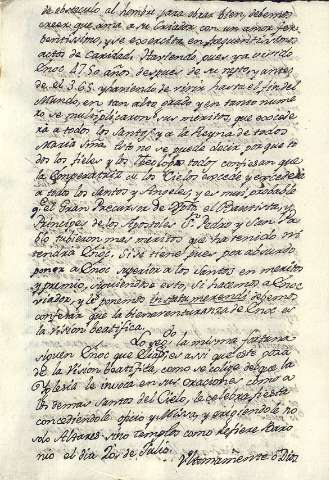 de obstaculo al hombre para obrar bien, debemos
creer que ama a su Criador con un amor fer-
bentissimo, y se exercita en frequentissimos
actos de Caridad. Haviendo pues ya vivido
Enoc 4750 años despues de su rapto, y antes
de el 365. y haviendo de vivir hasta el fin del
Mundo, en tan alto grado y en tanto nume-
ro se multiplicaron sus meritos, que excede
rà a todos los Santos, y a la Reyna de todos
Maria SSma. Esto no se puede decir porque to
dos los fieles y los Theologos todos confiesan que
la Emperatriz de los Cielos excede y excederà
a todos los Santos y Angeles, y es mui probable
qe. el Gran Precursor de Xpto. el Bautista, y
Principes de los Apostoles Sn. Pedro y San Pa-
blo tubieron mas meritos que ha tenido ni
tendrà Enoc. Si se tiene pues por absurdo
poner a Enoc superior a los Santos en meritos
y premio, siguiendose esto, si hacemos a Enoc
viador, y le ponemos in statu merendi debemos
confesar que la bienaventuranza de Enoc es
la vision beatifica.
Lo 2o. la misma fortuna
siguen Enoc que Elias; es assi que este goza
de la vision beatifica, como se colige de que la
Yglesia le invoca en sus oraciones como a
los demas Santos del Cielo, le celebra fiesta
concediendole oficio y Missa, y erigiendole no
solo Altares sino templos como refiere Baro
nio el dia 20. de Julio.
Ultimamente o Dios